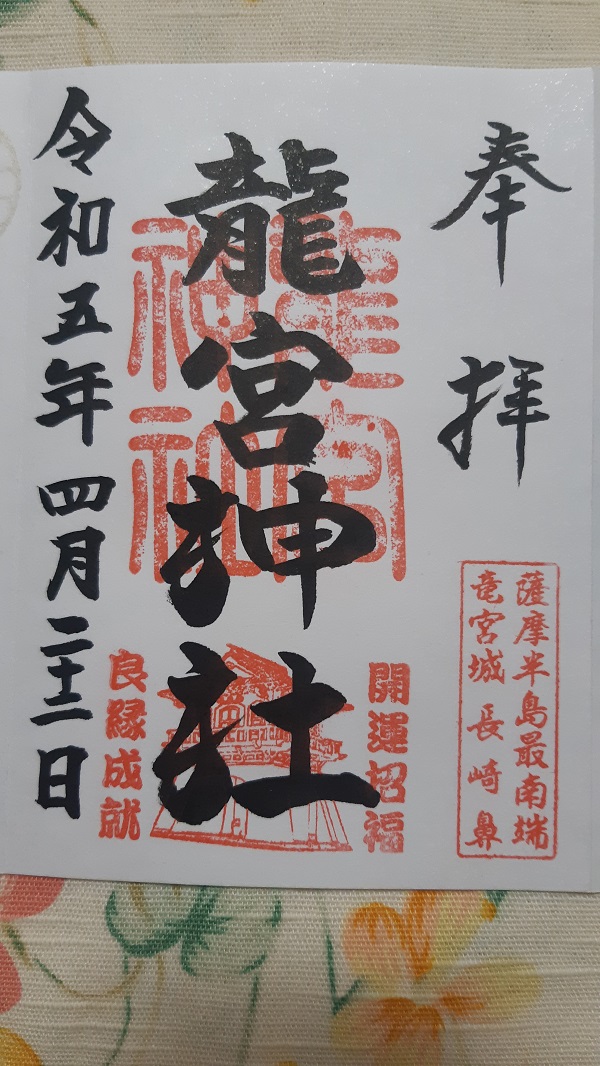 奉拝
薩摩半島最南端
竜宮城長崎鼻
龍宮神社
龍宮
神社
開運招福
良縁成就
令和五年四月二十二日